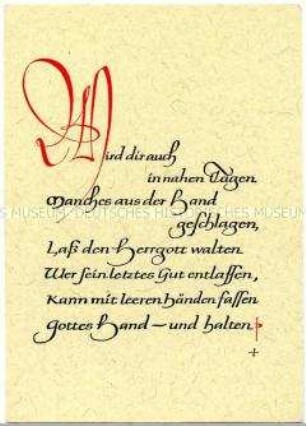 Wird dir auch
in nahen Tagen
Manches aus der Hand
geschlagen,
Laß den Herrgott walten
Wer sein letztes Gut entlassen,
Kann mit leeren Händen fassen
Gottes Hand – und halten
MUSEUM / DEUTSCHES HISTORISCHES MUSEUM